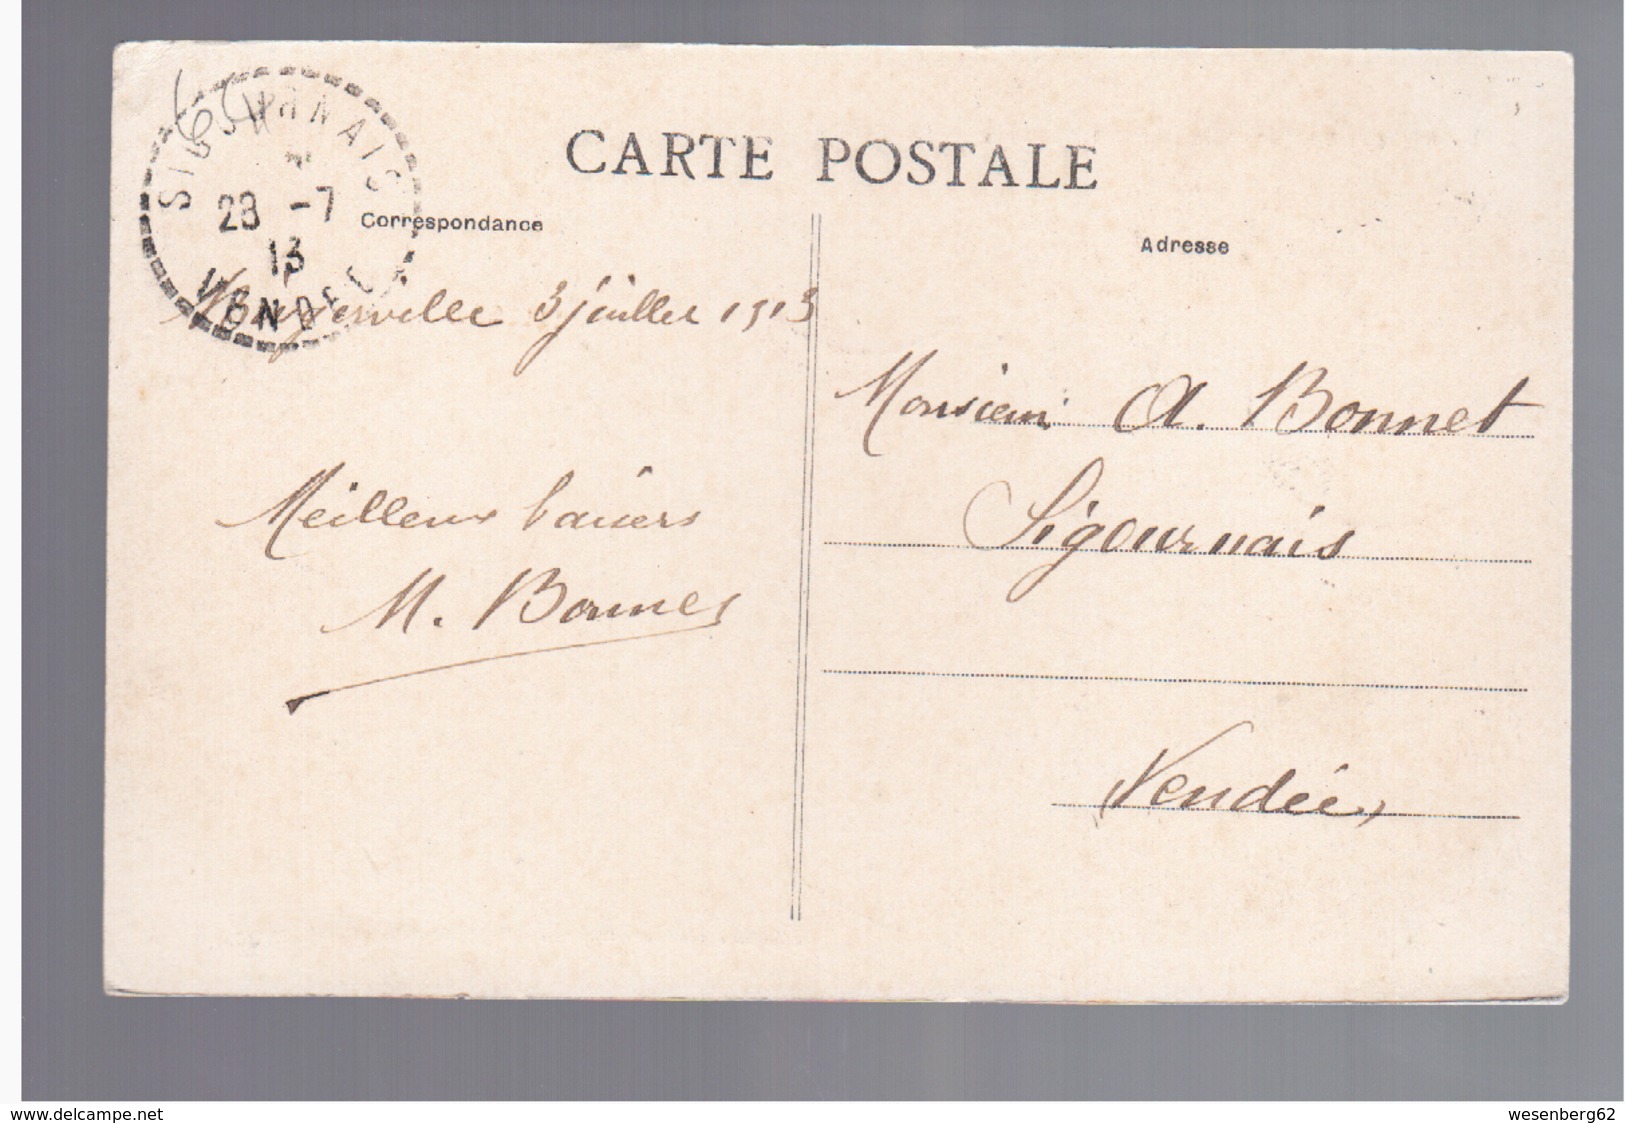 SIGOURNAIS
28 -7
13
VENDEE
CARTE POSTALE
Correspondance
Adresse
3 juillet 1913
Monsieur A. Bonnet
Sigournais
Vendée,
Meilleurs baisers
M. Bonnet
www.delcampe.net
wesenberg62